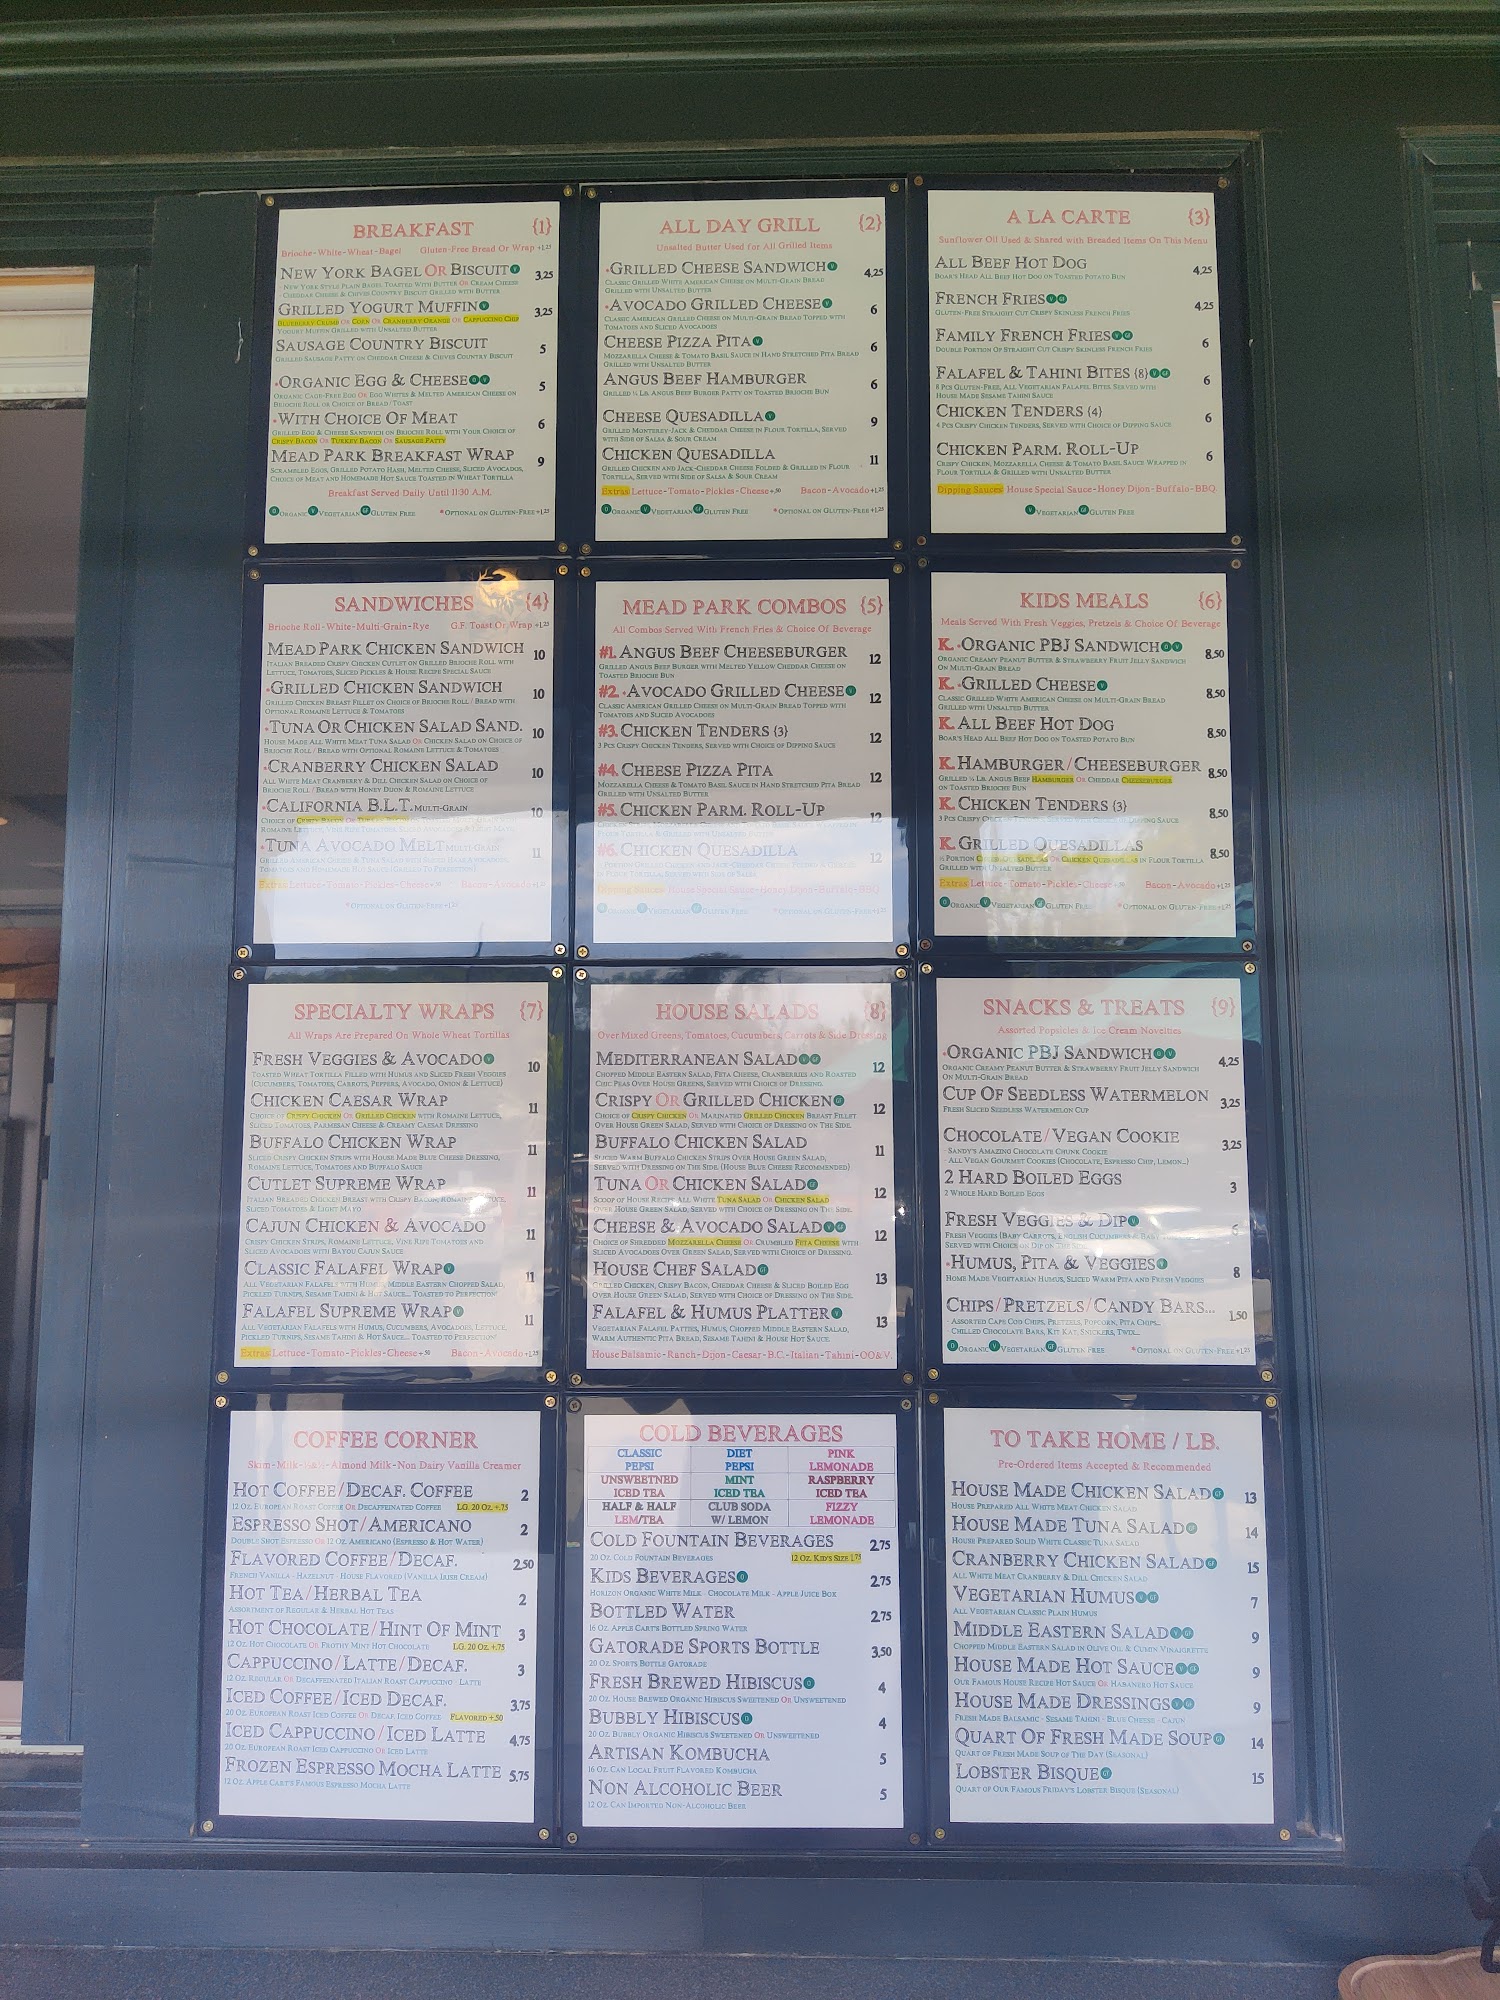 BREAKFAST {1}
Brioche-White-Wheat-Bagel Gluten-Free Bread Or Wrap +1.25
New York Bagel Or Biscuit V 3.25
- New York Style Plain Bagel Toasted With Butter Or Cream Cheese
- Cheddar Cheese & Chives Country Biscuit Grilled with Butter
Grilled Yogurt Muffin V 3.25
Blueberry Crumb Or Corn Or Cranberry Orange Or Cappuccino Chip
Yogurt Muffin Grilled with Unsalted Butter
Sausage Country Biscuit 5
Grilled Sausage Patty on Cheddar Cheese & Chives Country Biscuit
*Organic Egg & Cheese O V 5
Organic Cage-Free Egg Or Egg Whites & Melted American Cheese on
Brioche Roll or Choice of Bread/Toast
*With Choice Of Meat 6
Grilled Egg & Cheese Sandwich on Brioche Roll with Your Choice of
Crispy Bacon Or Turkey Bacon Or Sausage Patty
Mead Park Breakfast Wrap 9
Scrambled Eggs, Grilled Potato Hash, Melted Cheese, Sliced Avocados,
Choice of Meat and Homemade Hot Sauce Toasted in Wheat Tortilla
Breakfast Served Daily Until 11:30 A.M.
O Organic V Vegetarian GF Gluten Free *Optional on Gluten-Free +1.25
ALL DAY GRILL {2}
Unsalted Butter Used for All Grilled Items
*Grilled Cheese Sandwich V 4.25
Classic Grilled White American Cheese on Multi-Grain Bread
Grilled with Unsalted Butter
*Avocado Grilled Cheese V 6
Classic American Grilled Cheese on Multi-Grain Bread Topped with
Tomatoes and Sliced Avocadoes
Cheese Pizza Pita V 6
Mozzarella Cheese & Tomato Basil Sauce in Hand Stretched Pita Bread
Grilled with Unsalted Butter
Angus Beef Hamburger 6
Grilled ¼ Lb. Angus Beef Burger Patty on Toasted Brioche Bun
Cheese Quesadilla V 9
Grilled Monterey-Jack & Cheddar Cheese in Flour Tortilla, Served
with Side of Salsa & Sour Cream
Chicken Quesadilla 11
Grilled Chicken and Jack-Cheddar Cheese Folded & Grilled in Flour
Tortilla, Served with Side of Salsa & Sour Cream
Extras: Lettuce-Tomato-Pickles-Cheese+.50 Bacon-Avocado+1.25
O Organic V Vegetarian GF Gluten Free *Optional on Gluten-Free +1.25
A LA CARTE {3}
Sunflower Oil Used & Shared with Breaded Items On This Menu
All Beef Hot Dog 4.25
Boar's Head All Beef Hot Dog on Toasted Potato Bun
French Fries V GF 4.25
Gluten-Free Straight Cut Crispy Skinless French Fries
Family French Fries V GF 6
Double Portion Of Straight Cut Crispy Skinless French Fries
Falafel & Tahini Bites (8) V GF 6
8 Pcs Gluten-Free, All Vegetarian Falafel Bites Served with
House Made Sesame Tahini Sauce
Chicken Tenders (4) 6
4 Pcs Crispy Chicken Tenders, Served with Choice of Dipping Sauce
Chicken Parm. Roll-Up 6
Crispy Chicken, Mozzarella Cheese & Tomato Basil Sauce Wrapped in
Flour Tortilla & Grilled with Unsalted Butter
Dipping Sauces: House Special Sauce-Honey Dijon-Buffalo-BBQ
V Vegetarian GF Gluten Free
SANDWICHES {4}
Brioche Roll-White-Multi-Grain-Rye G.F. Toast Or Wrap +1.25
Mead Park Chicken Sandwich 10
Italian Breaded Crispy Chicken Cutlet on Grilled Brioche Roll with
Lettuce, Tomatoes, Sliced Pickles & House Recipe Special Sauce
*Grilled Chicken Sandwich 10
Grilled Chicken Breast Fillet on Choice of Brioche Roll / Bread with
Optional Romaine Lettuce & Tomatoes
*Tuna Or Chicken Salad Sand. 10
House Made All White Meat Tuna Salad Or Chicken Salad on Choice of
Brioche Roll / Bread with Optional Romaine Lettuce & Tomatoes
*Cranberry Chicken Salad 10
All White Meat Cranberry & Dill Chicken Salad on Choice of
Brioche Roll / Bread with Honey Dijon & Romaine Lettuce
*California B.L.T. Multi-Grain 10
Choice of Crispy Bacon Or Turkey Bacon on
Romaine Lettuce, Vine Ripe Tomatoes, Sliced Avocados & Light Mayo
*Tuna Avocado Melt Multi-Grain 11
Extras: Lettuce-Tomato-Pickles-Cheese+.50 Bacon-Avocado+1.25
*Optional on Gluten-Free +1.25
MEAD PARK COMBOS {5}
All Combos Served With French Fries & Choice Of Beverage
#1. Angus Beef Cheeseburger 12
Grilled Angus Beef Burger with Melted Yellow Cheddar Cheese on
Toasted Brioche Bun
#2. *Avocado Grilled Cheese V 12
Classic American Grilled Cheese on Multi-Grain Bread Topped with
Tomatoes and Sliced Avocadoes
#3. Chicken Tenders (3) 12
3 Pcs Crispy Chicken Tenders, Served with Choice of Dipping Sauce
#4. Cheese Pizza Pita 12
Mozzarella Cheese & Tomato Basil Sauce in Hand Stretched Pita Bread
Grilled with Unsalted Butter
#5. Chicken Parm. Roll-Up 12
Flour Tortilla & Grilled with Unsalted Butter
#6. Chicken Quesadilla 12
Dipping Sauces: House Special Sauce-Honey Dijon-Buffalo-BBQ
O Organic V Vegetarian GF Gluten Free *Optional on Gluten-Free +1.25
KIDS MEALS {6}
Meals Served With Fresh Veggies, Pretzels & Choice Of Beverage
K. *Organic PBJ Sandwich O V 8.50
Organic Creamy Peanut Butter & Strawberry Fruit Jelly Sandwich
on Multi-Grain Bread
K. *Grilled Cheese V 8.50
Classic Grilled White American Cheese on Multi-Grain Bread
Grilled with Unsalted Butter
K. All Beef Hot Dog 8.50
Boar's Head All Beef Hot Dog on Toasted Potato Bun
K. Hamburger/Cheeseburger 8.50
Grilled ¼ Lb. Angus Beef Hamburger Or Cheddar Cheeseburger
on Toasted Brioche Bun
K. Chicken Tenders (3) 8.50
3 Pcs Crispy Chicken Tenders, Served with Choice of Dipping Sauce
K. Grilled Quesadillas 8.50
½ Portion Cheese Quesadillas Or Chicken Quesadillas in Flour Tortilla
Grilled with Unsalted Butter
Extras: Lettuce-Tomato-Pickles-Cheese+.50 Bacon-Avocado+1.25
O Organic V Vegetarian GF Gluten Free *Optional on Gluten-Free +1.25
SPECIALTY WRAPS {7}
All Wraps Are Prepared On Whole Wheat Tortillas
Fresh Veggies & Avocado V 10
Toasted Wheat Tortilla Filled with Humus and Sliced Fresh Veggies
(Cucumbers, Tomatoes, Carrots, Peppers, Avocado, Onion & Lettuce)
Chicken Caesar Wrap 11
Choice of Crispy Chicken Or Grilled Chicken with Romaine Lettuce,
Sliced Tomatoes, Parmesan Cheese & Creamy Caesar Dressing
Buffalo Chicken Wrap 11
Sliced Crispy Chicken Strips with House Made Blue Cheese Dressing,
Romaine Lettuce, Tomatoes and Buffalo Sauce
Cutlet Supreme Wrap 11
Italian Breaded Chicken Breast with Crispy Bacon, Romaine Lettuce,
Sliced Tomatoes & Light Mayo
Cajun Chicken & Avocado 11
Crispy Chicken Strips, Romaine Lettuce, Vine Ripe Tomatoes and
Sliced Avocadoes with Bayou Cajun Sauce
Classic Falafel Wrap V 11
All Vegetarian Falafels with Humus, Middle Eastern Chopped Salad,
Pickled Turnips, Sesame Tahini & Hot Sauce... Toasted to Perfection!
Falafel Supreme Wrap V 11
All Vegetarian Falafels with Humus, Cucumbers, Avocadoes, Lettuce,
Pickled Turnips, Sesame Tahini & Hot Sauce... Toasted to Perfection!
Extras: Lettuce-Tomato-Pickles-Cheese+.50 Bacon-Avocado+1.25
HOUSE SALADS {8}
Over Mixed Greens, Tomatoes, Cucumbers, Carrots & Side Dressing
Mediterranean Salad V GF 12
Chopped Middle Eastern Salad, Feta Cheese, Cranberries and Roasted
Chic Peas Over House Greens, Served with Choice of Dressing.
Crispy Or Grilled Chicken GF 12
Choice of Crispy Chicken Or Marinated Grilled Chicken Breast Fillet
Over House Green Salad, Served with Choice of Dressing on The Side.
Buffalo Chicken Salad 11
Sliced Warm Buffalo Chicken Strips Over House Green Salad,
Served with Dressing on The Side. (House Blue Cheese Recommended)
Tuna Or Chicken Salad GF 12
Scoop of House Recipe All White Tuna Salad Or Chicken Salad
Over House Green Salad, Served with Choice of Dressing on The Side.
Cheese & Avocado Salad V GF 12
Choice of Shredded Mozzarella Cheese Or Crumbled Feta Cheese with
Sliced Avocadoes Over Green Salad, Served with Choice of Dressing.
House Chef Salad GF 13
Grilled Chicken, Crispy Bacon, Cheddar Cheese & Sliced Boiled Egg
Over House Green Salad, Served with Choice of Dressing on The Side.
Falafel & Humus Platter V 13
Vegetarian Falafel Patties, Humus, Chopped Middle Eastern Salad,
Warm Authentic Pita Bread, Sesame Tahini & House Hot Sauce.
House Balsamic-Ranch-Dijon-Caesar-B.C.-Italian-Tahini-OO&V.
SNACKS & TREATS {9}
Assorted Popsicles & Ice Cream Novelties
*Organic PBJ Sandwich O V 4.25
Organic Creamy Peanut Butter & Strawberry Fruit Jelly Sandwich
on Multi-Grain Bread
Cup Of Seedless Watermelon 3.25
Fresh Sliced Seedless Watermelon Cup
Chocolate/Vegan Cookie 3.25
- Sandy's Amazing Chocolate Chunk Cookie
- All Vegan Gourmet Cookies (Chocolate, Espresso Chip, Lemon...)
2 Hard Boiled Eggs 3
2 Whole Hard Boiled Eggs
Fresh Veggies & Dip V 6
Fresh Veggies (Baby Carrots, English Cucumbers & Baby
Served with Choice of Dip on The Side
*Humus, Pita & Veggies V 8
Home Made Vegetarian Humus, Sliced Warm Pita and Fresh Veggies
Chips/Pretzels/Candy Bars... 1.50
- Assorted Cape Cod Chips, Pretzels, Popcorn, Pita Chips...
- Chilled Chocolate Bars, Kit Kat, Snickers, Twix...
O Organic V Vegetarian GF Gluten Free *Optional on Gluten-Free +1.25
COFFEE CORNER
Skim-Milk-½&½-Almond Milk-Non Dairy Vanilla Creamer
Hot Coffee/Decaf. Coffee 2
12 Oz. European Roast Coffee Or Decaffeinated Coffee LG. 20 Oz. +.75
Espresso Shot/Americano 2
Double Shot Espresso Or 12 Oz. Americano (Espresso & Hot Water)
Flavored Coffee/Decaf. 2.50
French Vanilla - Hazelnut - House Flavored (Vanilla Irish Cream)
Hot Tea/Herbal Tea 2
Assortment of Regular & Herbal Hot Teas
Hot Chocolate/Hint Of Mint 3
12 Oz. Hot Chocolate Or Frothy Mint Hot Chocolate LG. 20 Oz. +.75
Cappuccino/Latte/Decaf. 3
12 Oz. Regular Or Decaffeinated Italian Roast Cappuccino - Latte
Iced Coffee/Iced Decaf. 3.75
20 Oz. European Roast Iced Coffee Or Decaf. Iced Coffee Flavored +.50
Iced Cappuccino/Iced Latte 4.75
20 Oz. European Roast Iced Cappuccino Or Iced Latte
Frozen Espresso Mocha Latte 5.75
12 Oz. Apple Cart's Famous Espresso Mocha Latte
COLD BEVERAGES
CLASSIC PEPSI DIET PEPSI PINK LEMONADE
UNSWEETNED ICED TEA MINT ICED TEA RASPBERRY ICED TEA
HALF & HALF LEM/TEA CLUB SODA W/ LEMON FIZZY LEMONADE
Cold Fountain Beverages 2.75
20 Oz. Cold Fountain Beverages 12 Oz. Kid's Size 1.75
Kids Beverages O 2.75
Horizon Organic White Milk - Chocolate Milk - Apple Juice Box
Bottled Water 2.75
16 Oz. Apple Cart's Bottled Spring Water
Gatorade Sports Bottle 3.50
20 Oz. Sports Bottle Gatorade
Fresh Brewed Hibiscus O 4
20 Oz. House Brewed Organic Hibiscus Sweetened Or Unsweetened
Bubbly Hibiscus O 4
20 Oz. Bubbly Organic Hibiscus Sweetened Or Unsweetened
Artisan Kombucha 5
16 Oz. Can Local Fruit Flavored Kombucha
Non Alcoholic Beer 5
12 Oz. Can Imported Non-Alcoholic Beer
TO TAKE HOME / LB.
Pre-Ordered Items Accepted & Recommended
House Made Chicken Salad GF 13
House Prepared All White Meat Chicken Salad
House Made Tuna Salad GF 14
House Prepared Solid White Classic Tuna Salad
Cranberry Chicken Salad GF 15
All White Meat Cranberry & Dill Chicken Salad
Vegetarian Humus V GF 7
All Vegetarian Classic Plain Humus
Middle Eastern Salad V GF 9
Chopped Middle Eastern Salad in Olive Oil & Cumin Vinaigrette
House Made Hot Sauce V GF 9
Our Famous House Recipe Hot Sauce Or Habanero Hot Sauce
House Made Dressings V GF 9
Fresh Made Balsamic - Sesame Tahini - Blue Cheese - Cajun
Quart Of Fresh Made Soup GF 14
Quart of Fresh Made Soup of The Day (Seasonal)
Lobster Bisque GF 15
Quart of Our Famous Friday's Lobster Bisque (Seasonal)